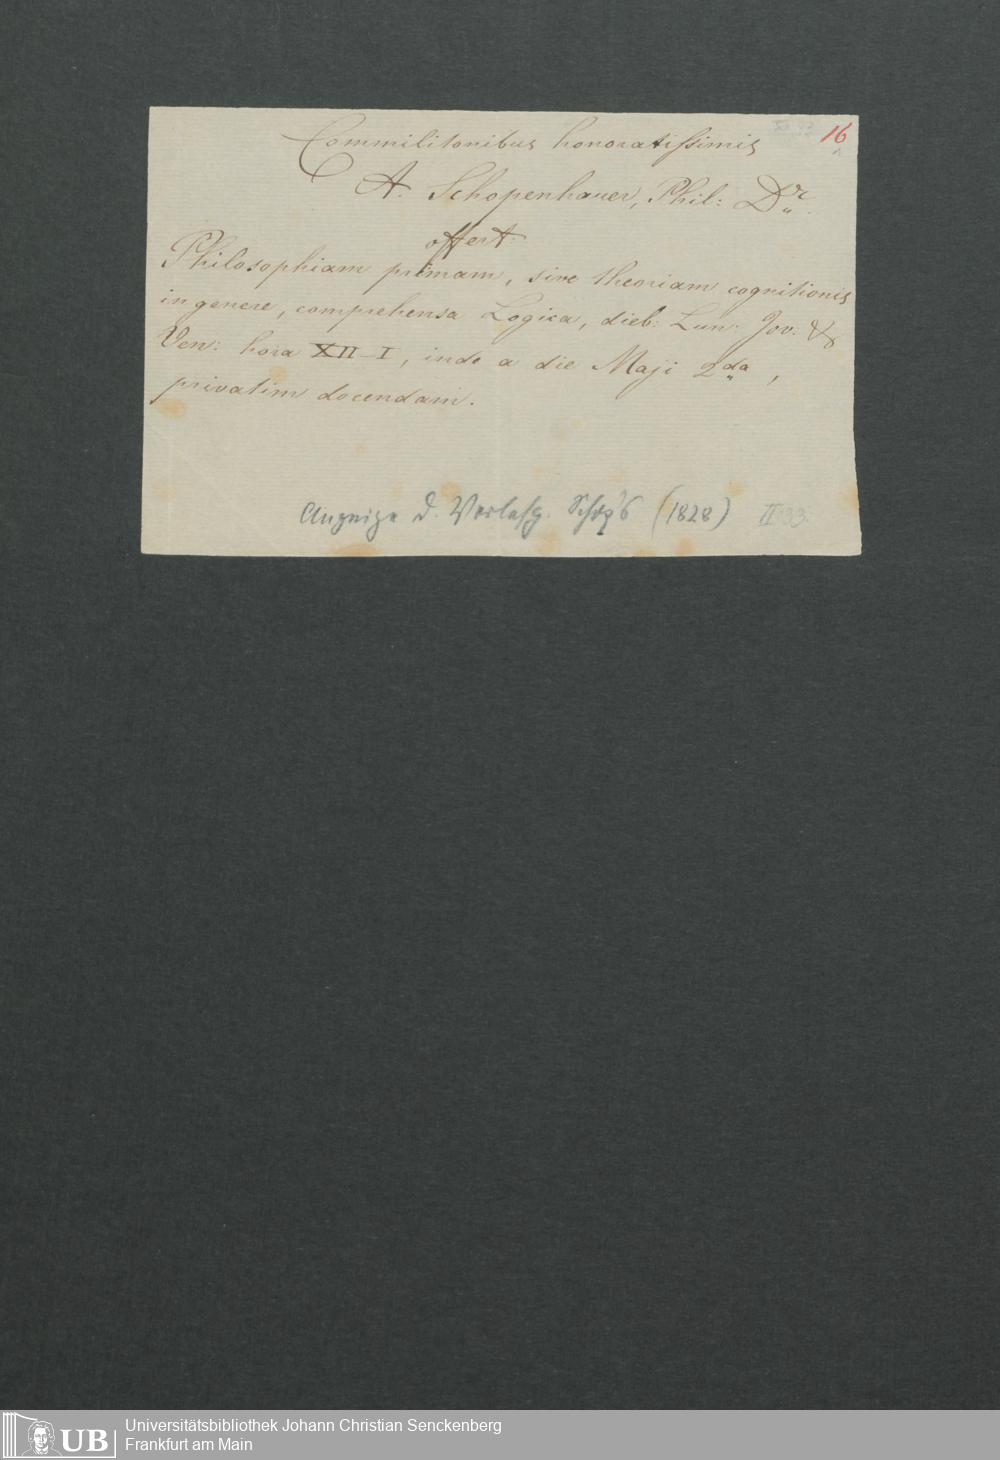 16
Commilitonibus honoratissimis
A. Schopenhauer, Phil: Dr.
offert:
Philosophiam primam, sive theoriam cognitionis
in genere, comprehensa Logica, dieb: Lun: Jov: &
Ven: hora XII–I, inde a die Maji 2da,
privatim docendam.
Anzeige d. Vorlesg. Schp's (1828) II 33.
UB
Universitätsbibliothek Johann Christian Senckenberg
Frankfurt am Main